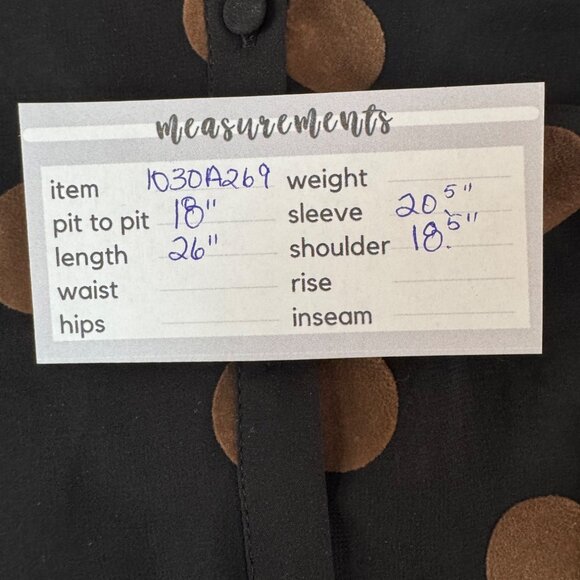 measurements
item 1030A269 weight
pit to pit 18" sleeve 20.5"
length 26" shoulder 18.5"
waist rise
hips inseam